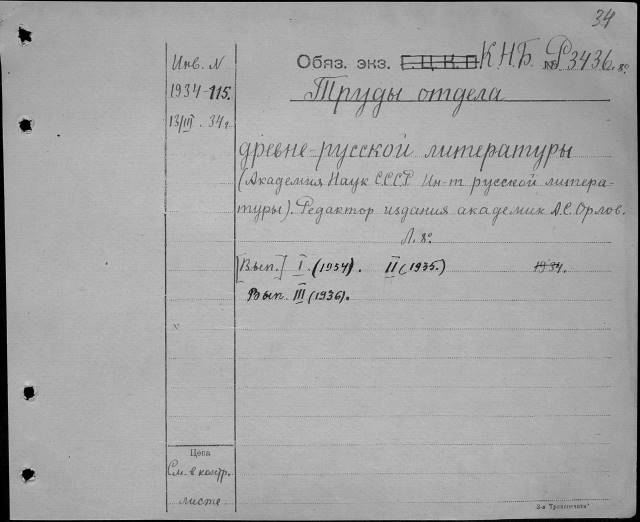 34
Инв. N
1934-115.
13/III. 34 г.
Обяз. экз. Г.Ц.К.Б К.Н.Б. № P3436. 8º.
Труды отдела
древне-русской литературы
(Академия Наук СССР Ин-т русской литера-
туры). Редактор издания академик А.С. Орлов.
Л. 8º.
[Вып.] I. (1934). II (1935.) 1934.
Вып. III (1936).
Цена
См. в контр.
листе